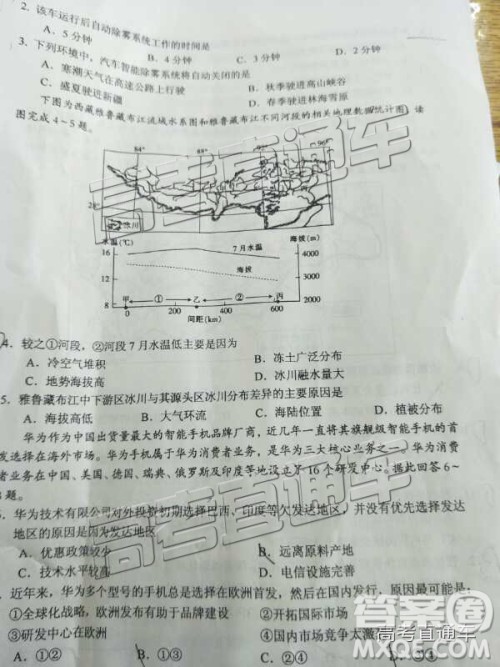 2. 该车运行后自动除雾系统工作的时间是
A. 5分钟 B. 4分钟 C. 3分钟 D. 2分钟
3. 下列环境中，汽车智能除雾系统将自动关闭的是
A. 寒潮天气在高速公路上行驶 B. 秋季驶进高山峡谷
C. 盛夏驶进新疆 D. 春季驶进林海雪原
下图为西藏雅鲁藏布江流域水系图和雅鲁藏布江不同河段的相关地理数据统计图）读
图完成4～5题。
84° 88° 92° 96°
冰川
水温(℃) 7月水温 海拔(m)
16 4000
12 海拔 3000
8 甲 ① 乙 ② 丙 2000
0 200 400 600
间距(km)
4. 较之①河段，②河段7月水温低主要是因为
A. 冷空气堆积 B. 冻土广泛分布
C. 地势海拔高 D. 冰川融水量大
5. 雅鲁藏布江中下游区冰川与其源头区冰川分布差异的主要原因是
A. 海拔高低 B. 大气环流 C. 海陆位置 D. 植被分布
华为作为中国出货量最大的智能手机品牌厂商，近几年一直将其旗舰级智能手机的首
发选择在海外市场。华为手机属于华为消费者业务，是华为三大核心业务之一，华为消费
者业务在中国、美国、德国、瑞典、俄罗斯及印度等地设立了16个研发中心。据此回答6～
题。
华为技术有限公司对外投资初期选择巴西、印度等欠发达地区，并没有优先选择发达
地区的原因是因为发达地区
A. 优惠政策较少 B. 远离原料产地
C. 技术水平较高 D. 电信设施完善
近年来，华为多个型号的手机总是选择在欧洲首发，然后在国内发行，原因最可能是：
①全球化战略，欧洲发布有助于品牌建设 ②开拓国际市场
③研发中心在欧洲 ④国内市场竞争太激
A. ①② B. ①③ C. ②④
高考直通车
高考直通车
答案圈
高考直通车